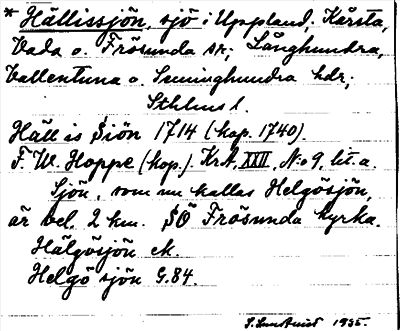 * Hällissjön, sjö i Uppland; Kårsta,
Vada o. Frösunda sr; Långhundra,
Vallentuna o. Seminghundra hdr;
Sthlms l.
Hällis Siön 1714 (kop. 1740).
F. W. Hoppe (kop.) KrA, XXII, No 9, lit. a.
Sjön, som nu kallas Helgösjön,
är bel. 2 km. SÖ Frösunda kyrka.
Hälgösjön ek.
Helgö sjön G.84.
1935.